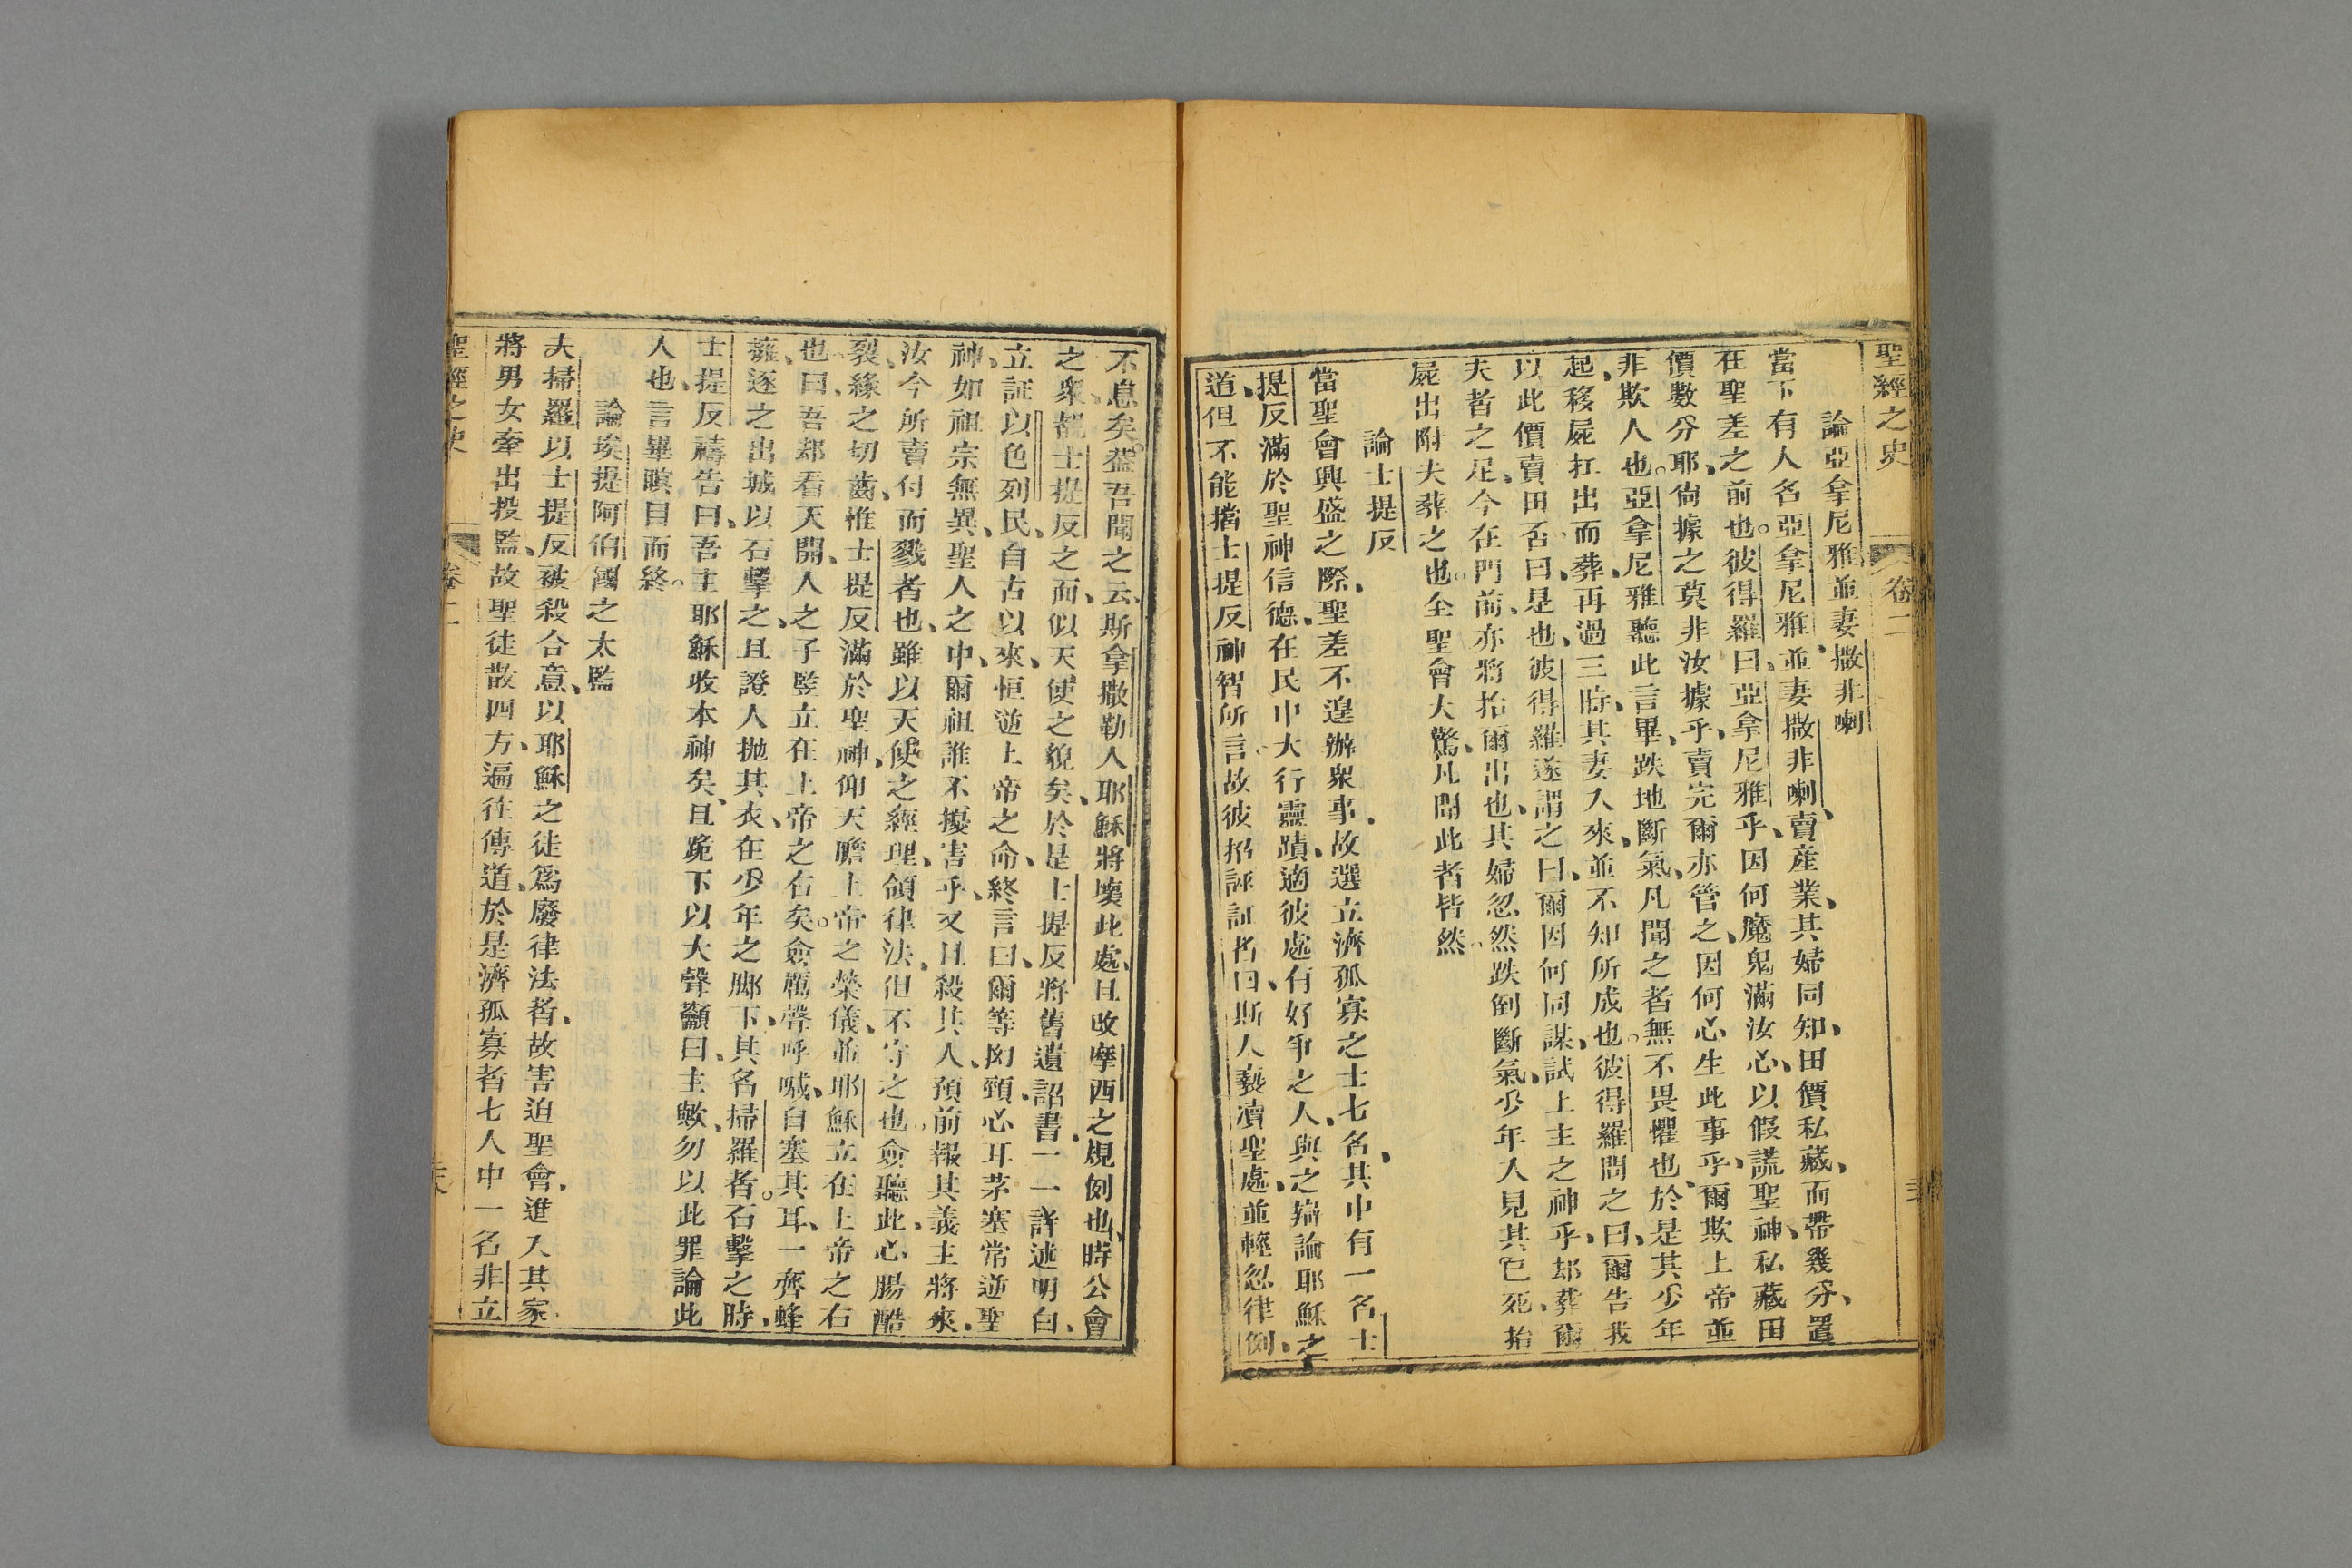 聖經之史 卷二
論亞拿尼雅並妻撒非喇
當下有人名亞拿尼雅、並妻撒非喇、賣產業、其婦同知、田價私藏、而帶幾分、置
在聖差之前也。彼得羅曰、亞拿尼雅乎、因何魔鬼滿汝心、以假謊聖神、私藏田
價數分耶、尙據之莫非汝據乎、賣完爾亦管之、因何心生此事乎、爾欺上帝並
非欺人也。亞拿尼雅聽此言畢、跌地斷氣、凡聞之者無不畏懼也、於是其少年
起、移屍扛出而葬、再過三時、其妻入來、並不知所成也。彼得羅問之曰、爾告我
以此價賣田否、曰、是也、彼得羅遂謂之曰、爾因何同謀、試上主之神乎、却葬爾
夫者之足、今在門前、亦將抬爾出也、其婦忽然跌倒斷氣、少年人見其已死、抬
屍出附夫葬之也。全聖會大驚、凡聞此者皆然。
論士提反
當聖會興盛之際、聖差不遑辦衆事、故選立濟孤寡之士七名、其中有一名士
提反滿於聖神信德、在民中大行靈蹟、適彼處有好爭之人、與之辯論耶穌之
道、但不能擋士提反神智所言。故彼招誣証者曰、斯人褻瀆聖處、並輕忽律例、
不息矣。蓋吾聞之云、斯拿撒勒人耶穌將壞此處、且改摩西之規例也、時公會
之衆、覩士提反之面、似天使之貌矣、於是士提反將舊遺詔書、一一詳述明白、
立証以色列民、自古以來、恒逆上帝之命、終言曰、爾等拗頸、心耳茅塞常逆聖
神、如祖宗無異、聖人之中、爾祖誰不擾害乎、又且殺其人、預前報其義主將來、
汝今所賣付而戮者也、雖以天使之經理、領律法、但不守之也。僉聽此、心腸酷
裂、緣之切齒、惟士提反滿於聖神、仰天瞻上帝之榮儀、並耶穌立在上帝之右
也、曰、吾却看天開、人之子竪立在上帝之右矣。僉厲聲呼喊、自塞其耳、一齊蜂
擁、逐之出城、以石擊之、且證人抛其衣、在少年之脚下、其名掃羅者。石擊之時、
士提反禱告曰、吾主耶穌收本神矣、且跪下以大聲籲曰、主歟、勿以此罪論此
人也、言畢瞑目而終。
論埃提阿伯國之太監
夫掃羅以士提反被殺合意、以耶穌之徒爲廢律法者、故害迫聖會、進入其家
將男女牽出投監、故聖徒散四方、遍往傳道、於是濟孤寡者七人中一名非立
聖經之史 卷二